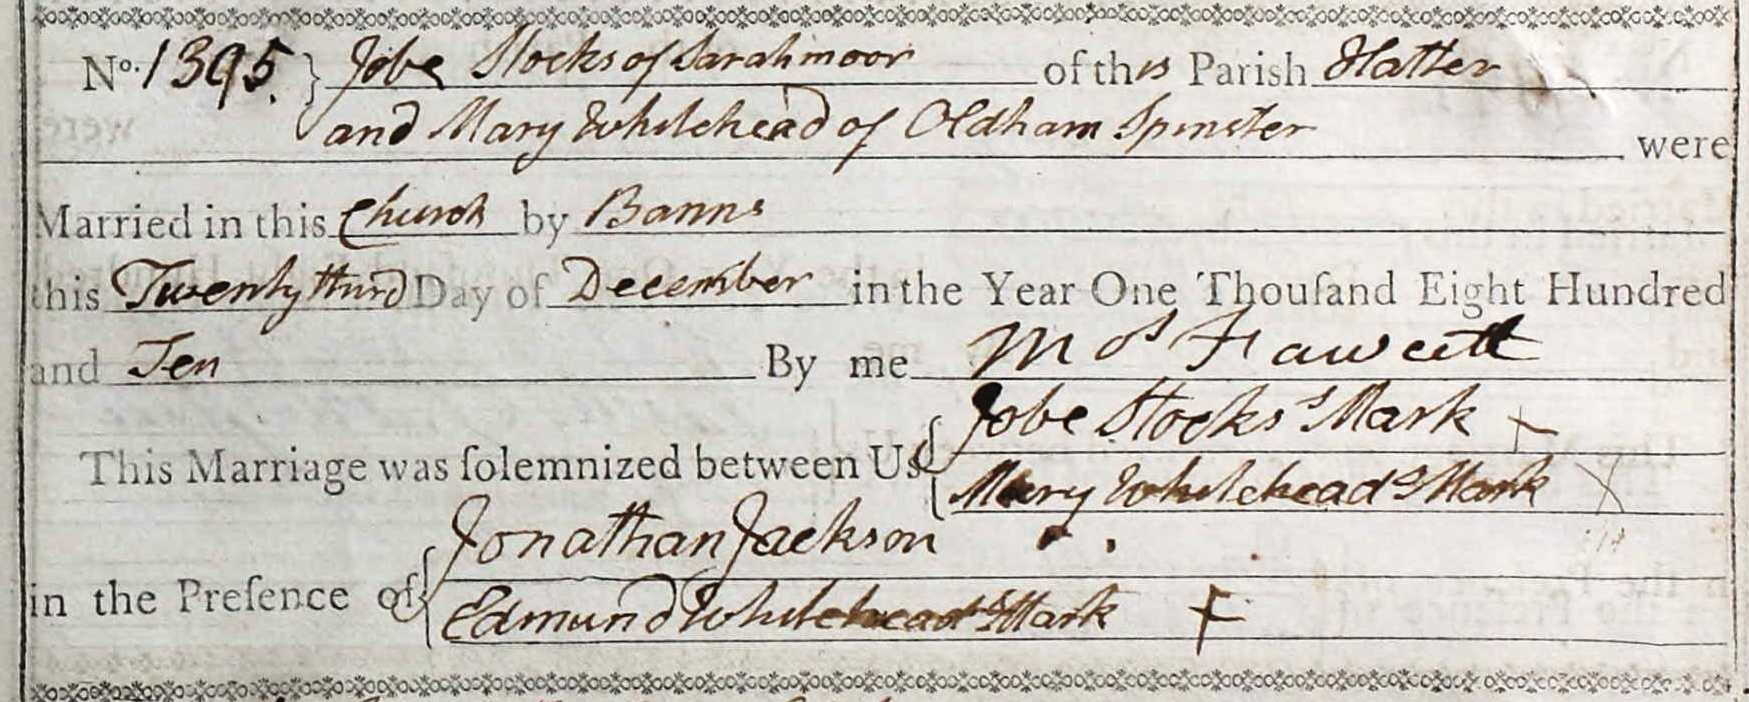 No. 1395. } Jobe Stocks of Sarahmoor of this Parish Hatter
and Mary Whitehead of Oldham Spinster were
Married in this Church by Banns
this Twenty third Day of December in the Year One Thouſand Eight Hundred
and Ten By me Mos Fawcett
Jobe Stocks's Mark +
This Marriage was ſolemnized between Us {
Mary Whitehead's Mark X
Jonathan Jackson
in the Preſence of {
Edmund Whitehead's Mark +